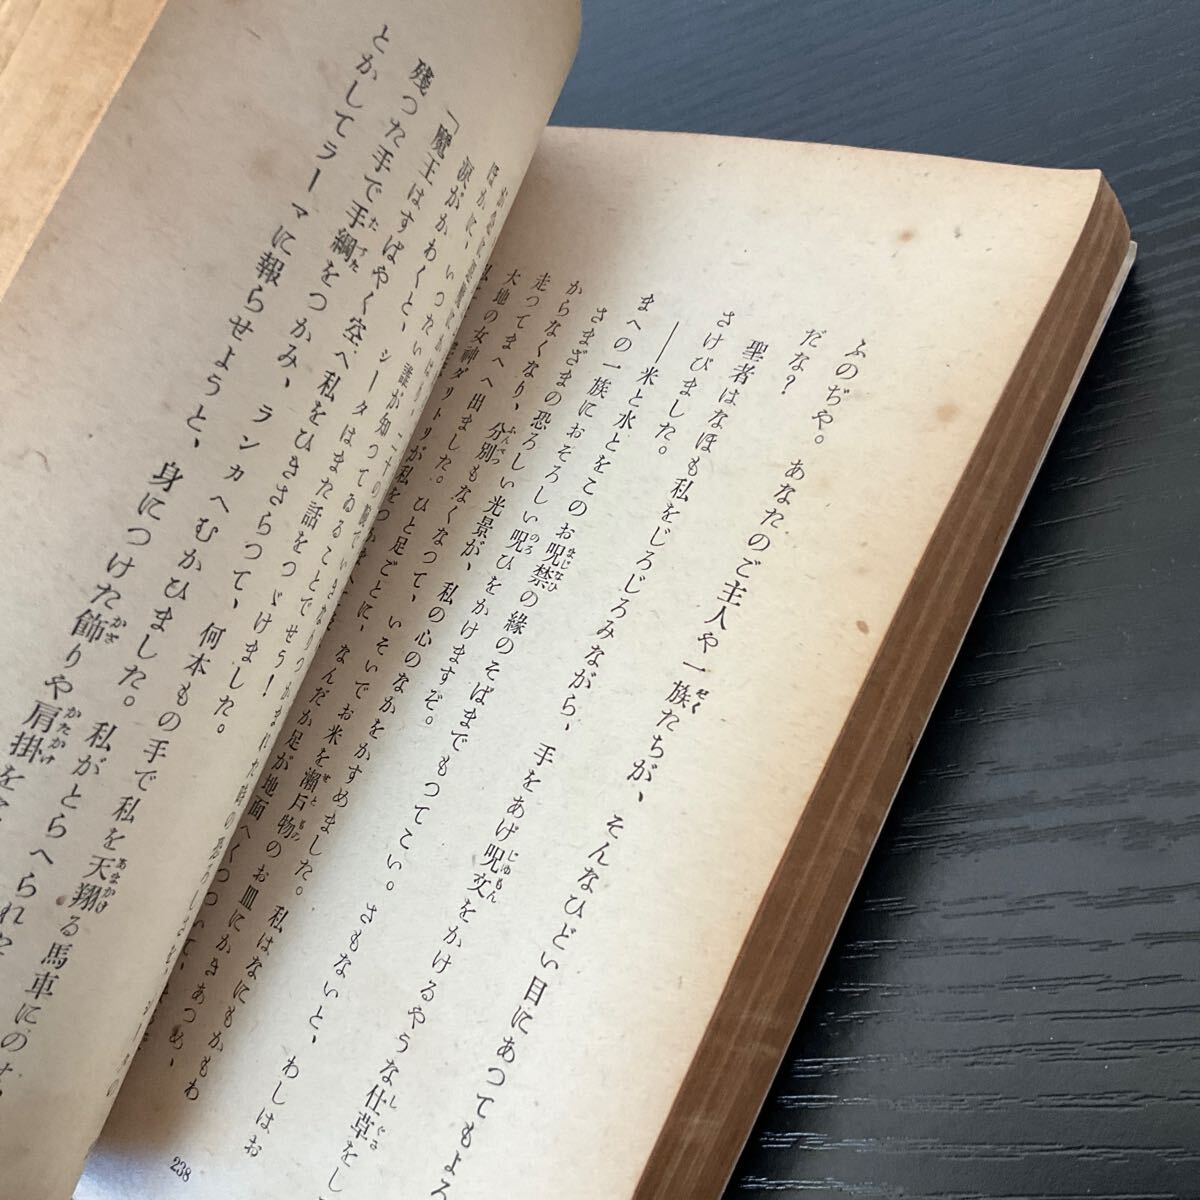 ふのぢや。あなたのご主人や一族たちが、そんなひどい目にあつてもよろ
だな?
聖者はなほも私をじろじろみながら、手をあげ呪文をかけるやうな仕草をし
さけびました。
――米と水とをこのお呪禁の緣のそばまでもつてこい。さもないと、わしはお
まへの一族におそろしい呪ひをかけますぞ。
さまざまの恐ろしい光景が、私の心のなかをかすめました。私はなにもかもわ
からなくなり、分別もなくなつて、いそいでお米を瀨戶物のお皿にかきあつめ、
走つてまへへ出ました。ひと足ごとに、なんだか足が地面へくつついて、
大地の女神ダリトリが私をつかまへ
238
淚がかわくと、シータはまた話をつゞけました。
「魔王はすばやく空へ私をひきさらつて、何本もの手で私を天翔る馬車にのせ、
殘つた手で手綱をつかみ、ランカへむかひました。私がとらへられ
とかしてラーマに報らせようと、身につけた飾りや肩掛を